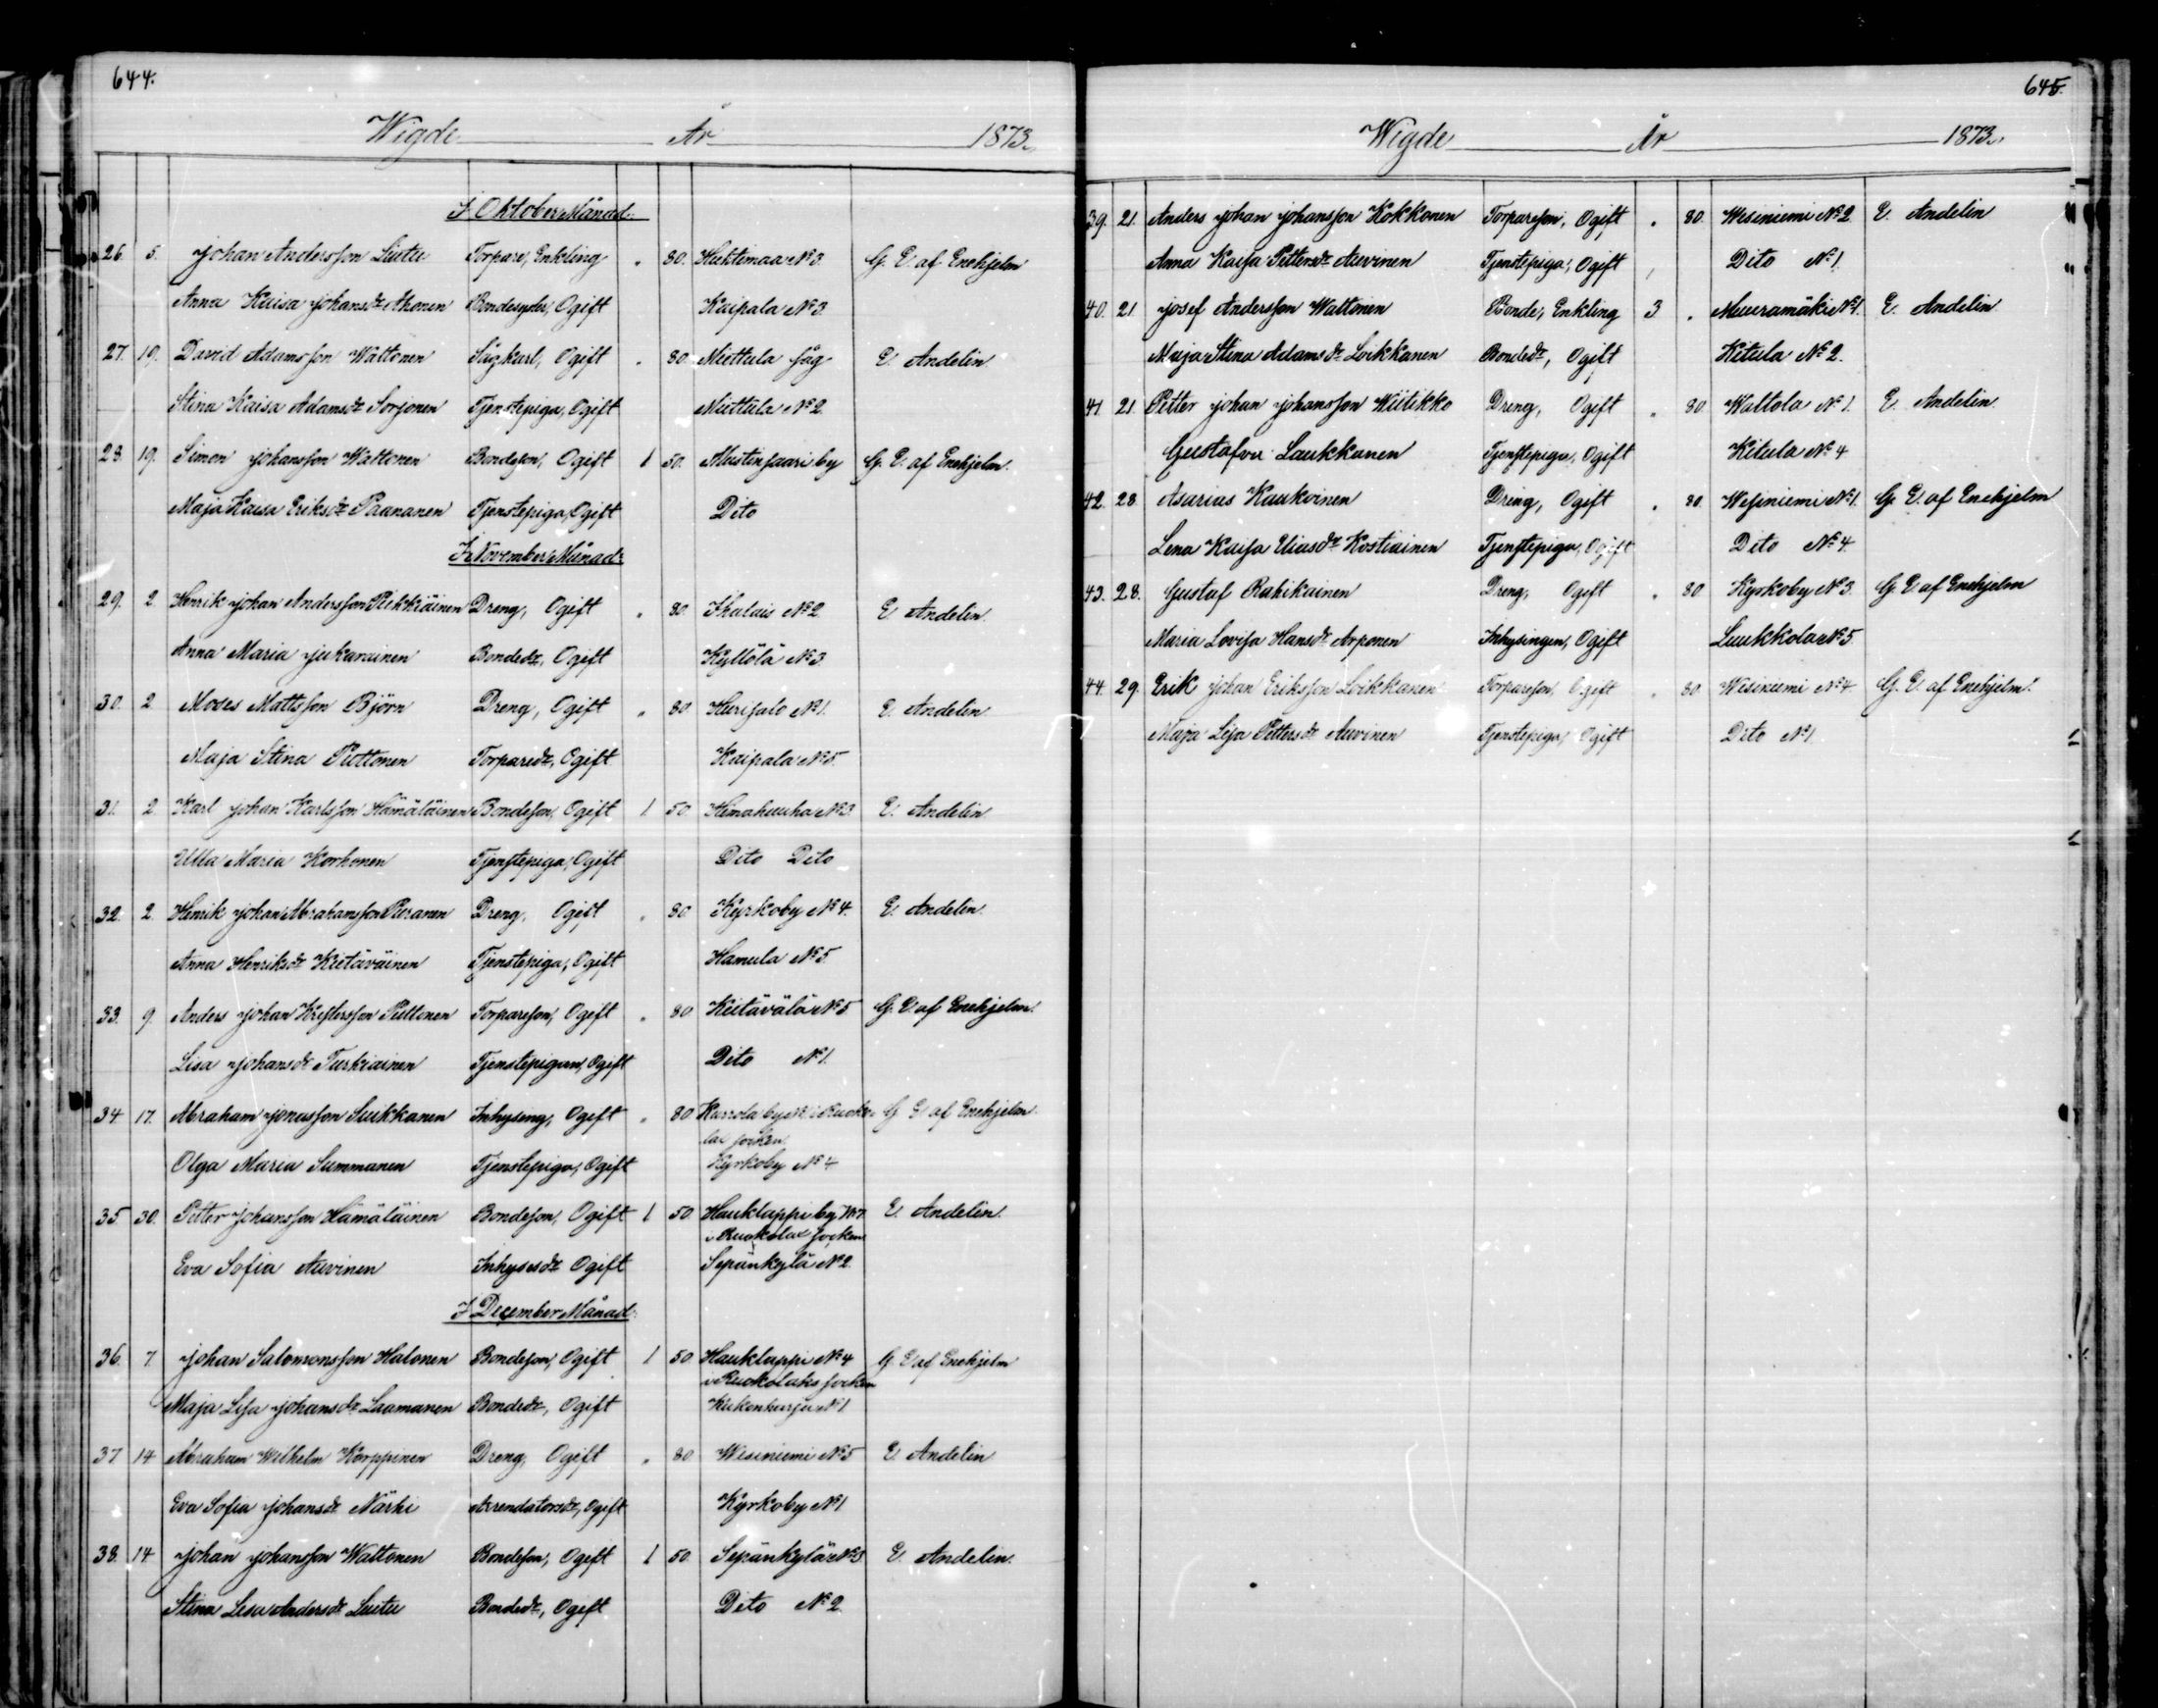 644.
Wigde År 1873.
I Oktober Månad.
26. 5. Johan Andersson Liutu Torpare, Enkling " 80. Huhtimaa No 3. G. E. af Enehjelm
Anna Kaisa Johansdr Ahonen Bondegder, Ogift Kaipala No 3.
27. 19. David Adamsson Wattonen Sågkarl, Ogift " 80 Miettula såg E. Andelin.
Stina Kaisa Adamsdr Sorjonen Tjenstepiga, Ogift Miettula No 2.
28. 19. Simon Johansson Wattonen Bondeson, Ogift 1 50. Mustinsaari by G. E. af Enehjelm.
Maja Kaisa Eriksdr Paananen Tjenstepiga, Ogift Dito
I November Månad.
29. 2. Henrik Johan Andersson Pekkräinen Dreng, Ogift " 80 Ihalais No 2. E. Andelin.
Anna Maria Jukarainen Bondedr, Ogift Kyllölä No 3.
30. 2 Moses Mattsson Björn Dreng, Ogift " 80 Hurisalo No 1. E. Andelin.
Maja Stina Pöttönen Torparedr, Ogift Kaipala No 5.
31. 2. Karl Johan Karlsson Hämäläinen Bondeson, Ogift 1 50 Hemahauha No 3. E. Andelin
Ulla Maria Korhonen Tjenstepiga, Ogift Dito Dito
32. 2 Henrik Johan Abrahamsson Puranen Dreng, Ogift " 80 Kyrkoby No 4. E. Andelin.
Anna Henriksdr Kietäväinen Tjenstepiga, Ogift Hamula No 5.
33. 9. Anders Johan Kristersson Pulttonen Torpareson, Ogift " 80 Kietävälä No 5 G. E. af Enehjelm.
Lisa Johansdr Turkiainen Tjenstepigan, Ogift Dito No 1.
34 17. Abraham Jonasson Suikkanen Inhyseng, Ogift " 80 Karrola by No 1 i Ruoko- G. E. af Enehjelm.
lax socken.
Olga Maria Summanen Tjenstepiga, Ogift Kyrkoby No 4
35 30. Petter Johansson Hämäläinen Bondeson, Ogift 1 50. Hauklappi by No 7. E. Andelin.
i Ruokolax socken
Eva Sofia Auvinen Inhysesdr Ogift Sepänkylä No 2
I December Månad.
36. 7. Johan Salomonsson Halonen Bondeson, Ogift 1 50 Hauklappi No 4 G. E. af Enehjelm
i Ruokolaks socken
Maja Lisa Johansdr Laamanen Bondedr, Ogift Kukonharju No 1
37 14 Abraham Wilhelm Korppinen Dreng, Ogift " 80 Wesiniemi No 5 E. Andelin
Eva Sofia Johansdr Närhi Arrendatorsdr, Ogift Kyrkoby No 1
38. 14 Johan Johansson Wattonen Bondeson, Ogift 1 50. Sepänkylä No 3. E. Andelin.
Stina Lisa Andersdr Liutu Bondedr, Ogift Dito No 2.
645.
Wigde År 1873.
39. 21. Anders Johan Johansson Kokkonen Torpareson, Ogift " 80. Wesiniemi No 2. E. Andelin
Anna Kaisa Pettersdr Auvinen Tjenstepiga, Ogift Dito No 1.
40. 21 Josef Andersson Wattonen Bonde, Enkling 3 " Muuramäki No 1. E. Andelin.
Maja Stina Adamsdr Loikkanen Bondedr, Ogift Kitula No 2.
41. 21. Petter Johan Johansson Wiitikko Dreng, Ogift " 80. Wattola No 1. E. Andelin.
Gustafva Laukkanen Tjenstepiga, Ogift Kitula No 4
42. 28. Asarias Kaukoinen Dreng, Ogift " 80. Wesiniemi No 1. G. E. af Enehjelm
Lena Kaisa Eliasdr Kostiainen Tjenstepiga, Ogift Dito No 4.
43. 28. Gustaf Rahikainen Dreng, Ogift " 80 Kyrkoby No 3. G. E. af Enehjelm
Maria Lovisa Hansdr Arponen Inhysingen, Ogift Luukkola No 5
44. 29. Erik Johan Eriksson Loikkanen Torpareson, Ogift " 80. Wesiniemi No 4. G. E. af Enehjelm.
Maja Lisa Pettersdr Auvinen Tjenstepiga, Ogift Dito No 1.